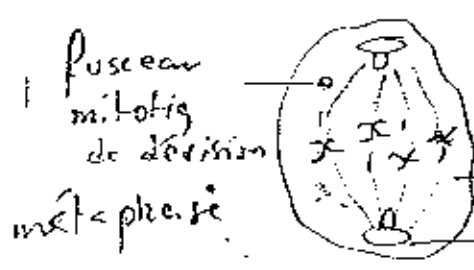 fuseau
mitotiq
de division
métaphase